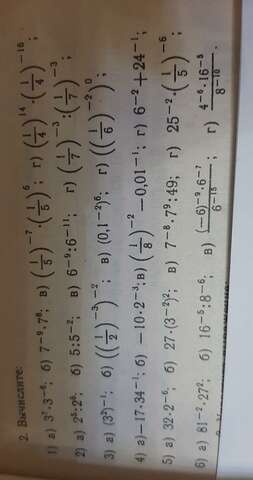 2. Вычислите:
1) а) 3⁷·3⁻⁶; б) 7⁻⁹·7⁸; в) (1/5)⁻⁷·(1/5)⁶; г) (1/4)¹⁴·(1/4)⁻¹⁶;
2) а) 2⁵:2⁶; б) 5:5⁻²; в) 6⁻⁹:6⁻¹¹; г) (1/7)⁻³:(1/7)⁻³;
3) а) (3²)⁻¹; б) ((1/2)⁻³)⁻²; в) (0,1⁻²)⁶; г) ((1/6)⁻²)⁰;
4) а)–17·34⁻¹; б) –10·2⁻³; в) (1/8)⁻²–0,01⁻¹; г) 6⁻²+24⁻¹;
5) а) 32·2⁻⁶; б) 27·(3⁻²)²; в) 7⁻⁸·7⁹:49; г) 25⁻²·(1/5)⁻⁶;
6) а) 81⁻²·27²; б) 16⁻⁵:8⁻⁶; в) (–6)⁻⁹·6⁻⁷/6⁻¹⁵; г) 4⁻⁶·16⁻⁸/8⁻¹⁰.